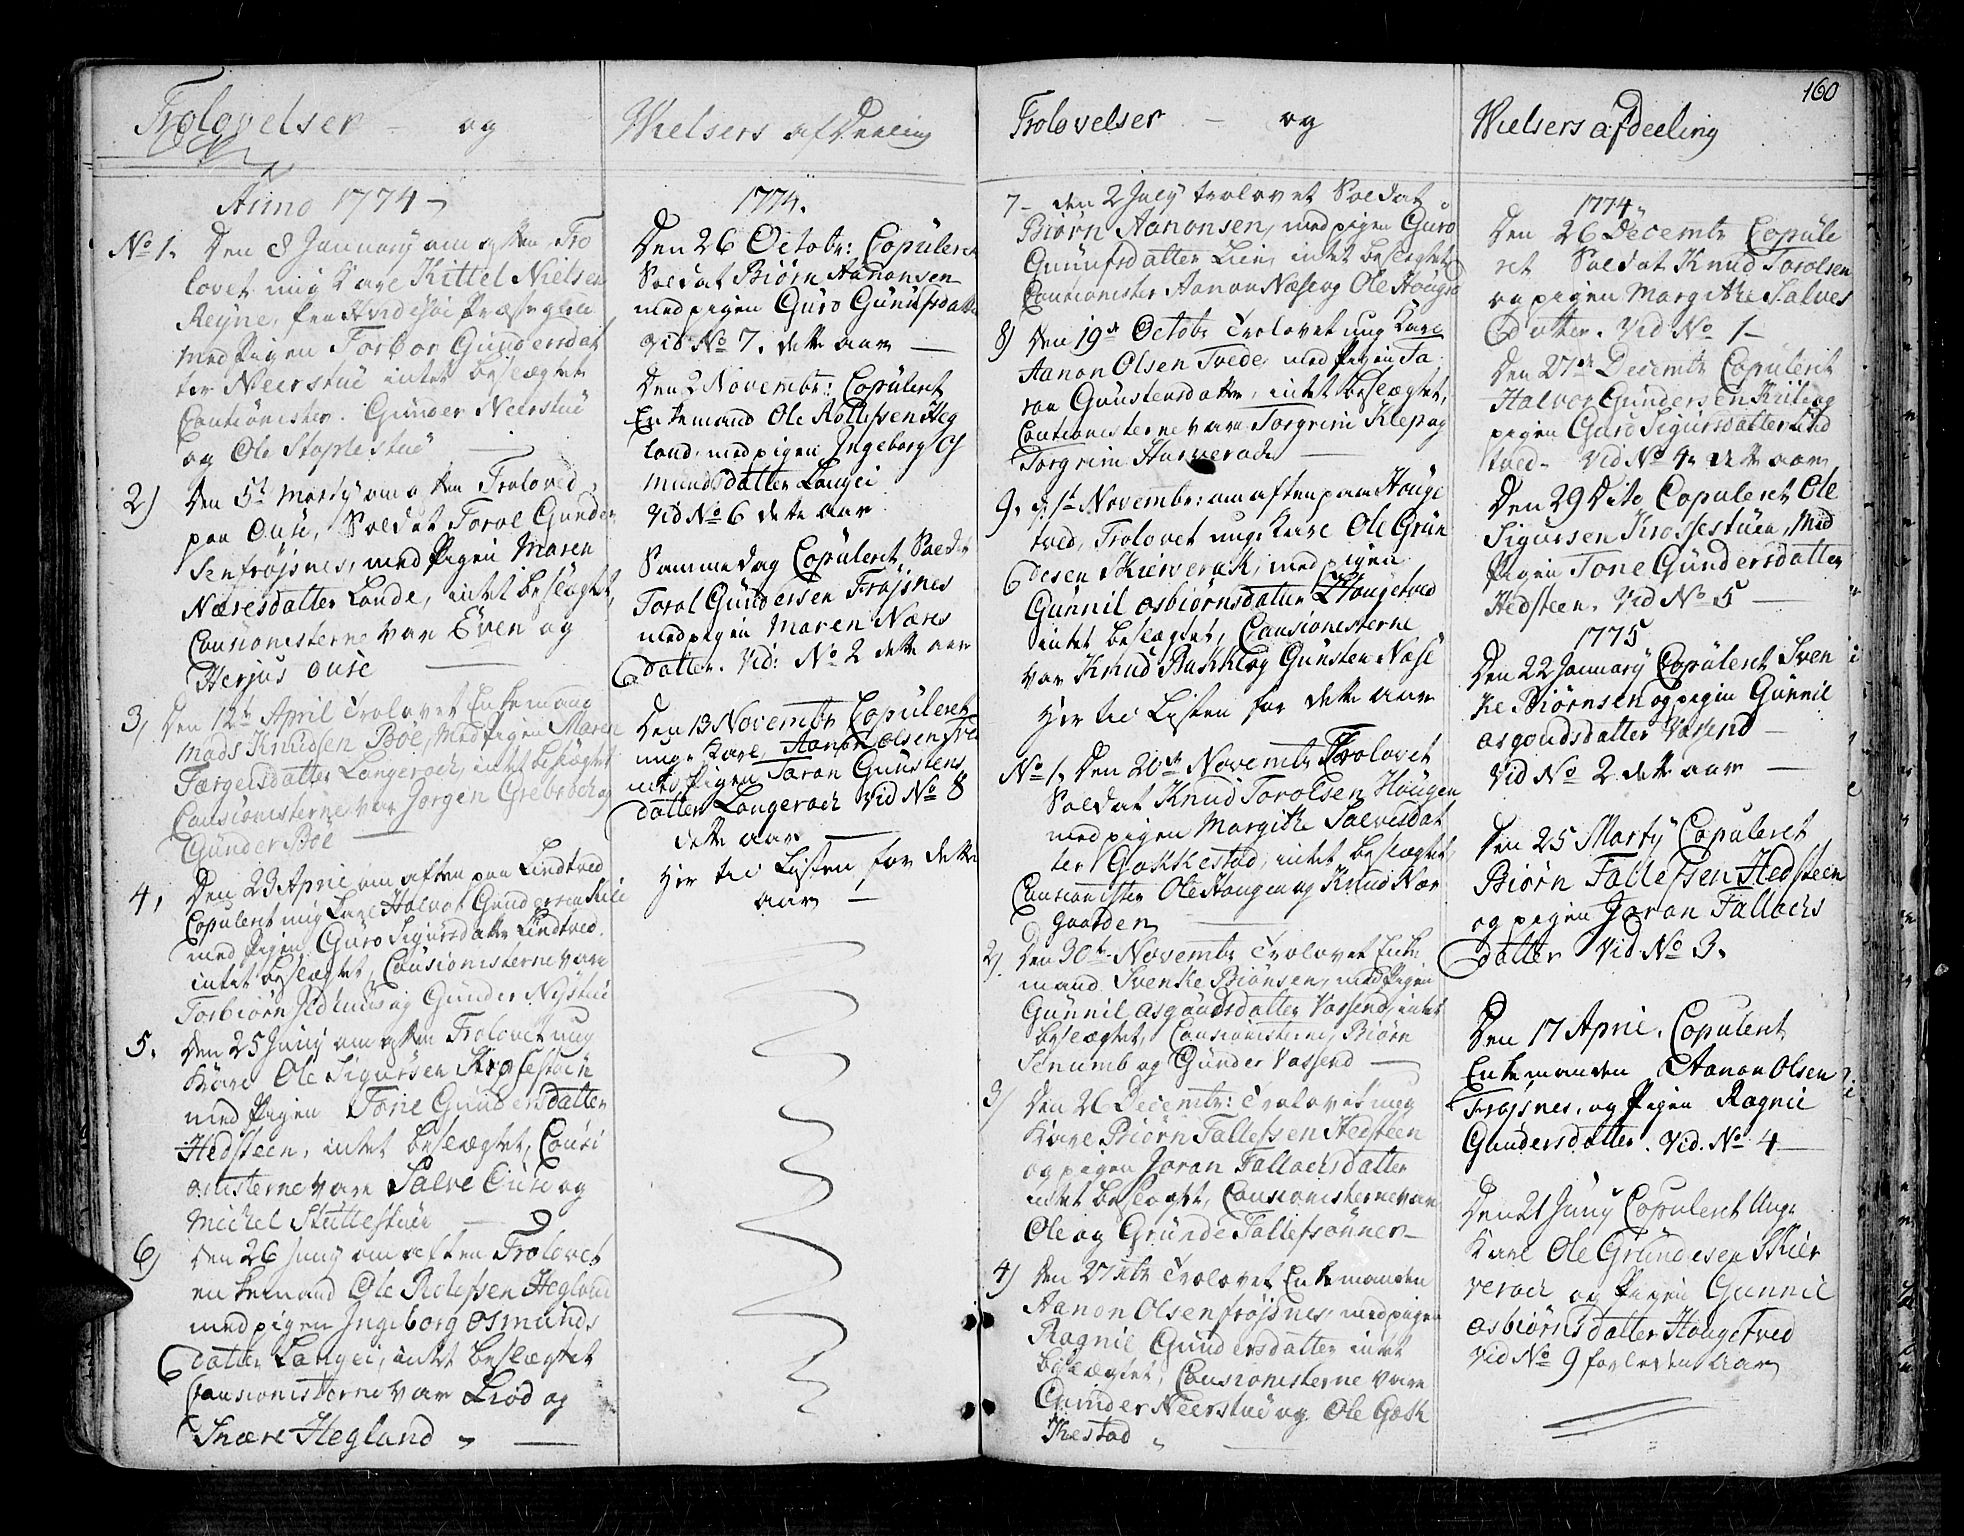 Trolovelser – og
Anno 1774
No 1. Den 8 January om aften Tro
lovet ung Karl Kittel Nielsen
Reyne, fra Hvidesøe Præstegield
med Pigen Torbor Gundersdat
ter Neerstue intet beslægtet
Cautionister. Gunder Neerstue
og Ole Staplestue
2) Den 5te Marty om aften Troloved
paa Ouse, Soldat Torol Gunder
sen frøjsnes, med Pigen Maren
Næresdatter Lande, intet beslegtet,
Causionisterne var Even og
Herjus ouse
3, Den 12te April Trolovet Enkemand
Mads Knudsen Boe, med Pigen Maren
Tærgelsdatter Langerach, intet beslegtet
Causionisterne var Jorgen Grebrock og
Gunder Boe
4, Den 23 April om aften paa Lindtved
Copuleret ung Karl Halvor Gundersen Kili
med Pigen Guro Sigursdatter Lindtved.
intet beslegtet, Causionisterne vare
Torbiørn og Gunder Nystue
5. Den 25 Juny om aften Trolovet ung
Karl Ole Sigursen Krossestuen
med Pigen Tone Gundersdatter
Hedsteen, intet beslægtet, Causi
onisterne vare Salve Ouse og
Michel Stuttestuen
6) Den 26 Juny om aften Trolovet
enkemand Ole Rolefsen Hegland
med pigen Ingeborg Osmunds
datter Langei, intet beslægtet
Causionisterne var Liød og
Snære Hegland
Wielsers afDeeling
1774.
Den 26 Octobr: Copuleret
Soldat Biørn Aanonsen
med pigen Guro Gunufsdatter
vid No 7. dette aar
Den 2 Novembr: Copuleret
Enkemand Ole Rollefsen Heg
land, med pigen Ingeborg Os
mundsdatter Langei
Vid No 6 dette aar
Sammedag Copuleret Soldat
Torol Gundersen Frøjsnes
med pigen Maren Næres
datter. Vid: No 2 dette aar
Den 13 Novembr Copuleret
unge Karl Aanon olsen Tve
med Pigen Taran Gunstens
datter Langerach Vid No 8
dette aar
Her til Listen for dette
aar
Trolovelser – og
7– den 2 July trolovet Soldat
Biørn Aanonsen, med pigen Guro
Gunufsdatter Lien, intet beslegtet
Causionister Aanon Næse og Ole Hougen
8) Den 19de Octobr Trolovet ung Karl
Aanon Olsen Tvede, med Pigen Ta
ran Gunstensdatter, intet beslegtet,
Cautionisterne vare Torgrim Klep og
Torgrim Harverach
9. d. 1te November: om aften paa Houge
tved, Trolovet unge Karl Ole Grun
desen Skierverak, med pigen
Gunnil Osbiørnsdatter Hougetved
intet beslægtet, Causionesterne
var Knud Bakke og Gunsten Næse
Her til Listen for dette aar
No 1. Den 20de Novembr Trolovet
Soldat Knud Torolsen Hougen
med pigen Margithe Salvesdat
ter Gakkestad, intet beslegtet,
Causionister Ole Hougen og Knud Nor
gaarden
2) Den 30te Novembr Trolovet Enke
mand Svenke Biønsen, med Pigen
Gunnil asgoudsdatter Vassend, intet
beslegtet, Causionisterne, Biørn
Senumb og Gunder Vassend
3) Den 26 Decembr: Trolovet ung
Karl Biørn Tallefsen Hedsteen
og pigen Joran Tallachsdatter
intet beslegtet, Causionisterne var
Ole og Grunde Tallefsønner
4) Den 27 Xbr Trolovet Enkemanden
Aanon Olsen frøjsnes med pigen
Ragnil Gundersdatter intet
beslægtet, Causionisterne vare
Gunder Neerstue og Ole Gak
kestad
Wielsers afdeeling
160
1774.
Den 26 Decembr Copule
ret Soldat Knud Torolsen
og pigen Margithe Salves
datter. Vid No 1
Den 27de Decembr Copuleret
Halvor Gundersen Kili og
pigen Guro Sigursdatter Lind
tved. Vid No 4. dette aar
Den 29 Dito Copuleret Ole
Sigursen Krossestuen, Med
Pigen Tone Gundersdatter
Hedsteen. Vid No 5
1775
Den 22 January Copuleret Sven
ke Biørnsen og pigen Gunnil
asgoudsdatter Vasend
Vid No 2 dette aar
Den 25 Marty Copuleret
Biørn Tallefsen Hedsteen
og pigen Joran Tallachs
datter Vid No 3.
Den 17 April. Copuleret
Enkemanden Aanon Olsen
Frøjsnes, og Pigen Ragnil
Gundersdatter. Vid. No 4
Den 21 Juny Copuleret Ung:
Karl Ole Grundesen Skier
verach og Pigen Gunnil
Osbiørnsdatter Hougetved
Vid No 9 forleden Aar